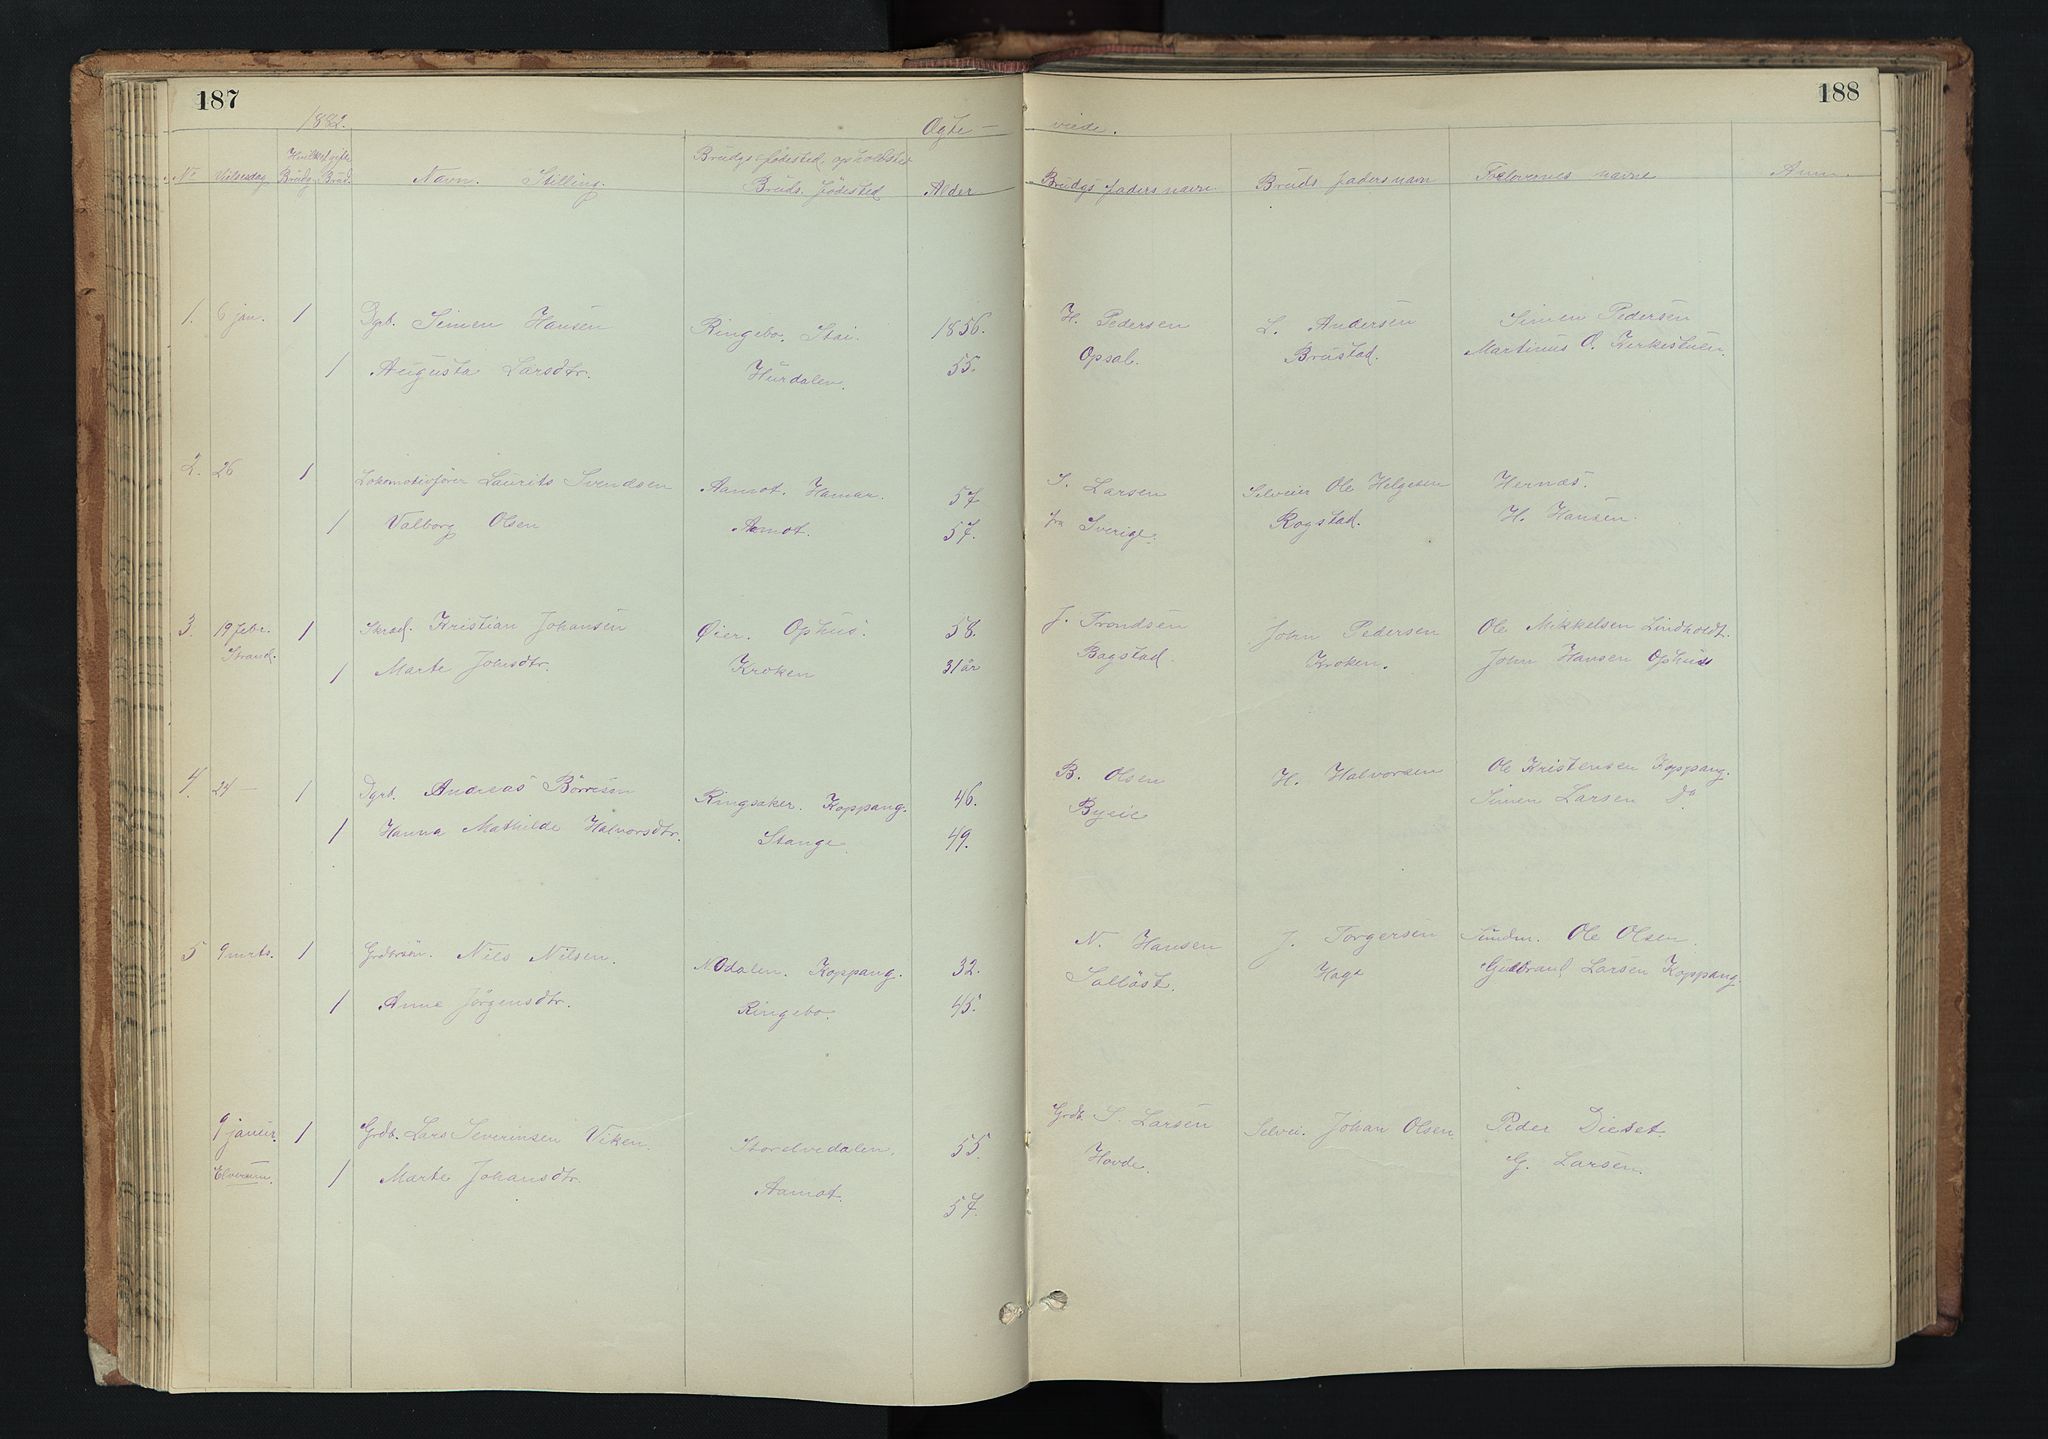 187
188
1882.
Ægte —
viede.
Hvilket gifte
Brudgs fødested, opholdsted
No Vielsesdag Brudg. Brud. Navn. Stilling. Bruds. fødested Alder Brudgs faders navn Bruds faders navn Forlovernes navne Anm.
1. 6 jan. 1 Dgrb. Simen Hansen Ringebo. Stai. 1856. H. Pedersen L. Andersen Simen Pedersen
1 Augusta Larsdtr. Hurdalen. 55. Opsal. Brustad. Martinus O. Kirkestuen.
2. 26 1 Lokomotivfører Laurits Svendsen Aamot. Hamar. 57 S. Larsen Selveier Ole Helgesen Hernæs.
1 Valborg Olsen Aamot. 57. fra Sverige. Rogstad. H. Hansen.
3. 19 febr. 1 Skræd. Kristian Johansen Øier. Ophus. 58. J. Trondsen John Pedersen Ole Mikkelsen Lindholdt.
Strand. 1 Marte Johnsdtr. Kroken 31 år Bagstad. Kroken. John Hansen Ophus
4. 24 — 1 Dgrb. Andreas Børresen Ringsaker. Koppang. 46. B. Olsen H. Halvorsen Ole Kristensen Koppang.
1 Hanna Mathilde Halvorsdtr. Stange. 49. Byeie Simen Larsen Do
5 9 mrts. 1 Grdbrsøn. Nils Nilsen. N Odalen. Koppang. 32. N. Hansen J. Torgersen Ole Olsen.
1 Anne Jørgensdtr. Ringebo. 45. Solløst. Hage Gulbrand Larsen Koppang.
9 januar. 1 Grdb. Lars Severinsen Viken. Storelvedalen. 55. Grdb. S. Larsen Selvei. Johan Olsen Peder Dieset.
Elverum. 1 Marte Johansdtr. Aamot. 57. Hovde. G. Larsen.